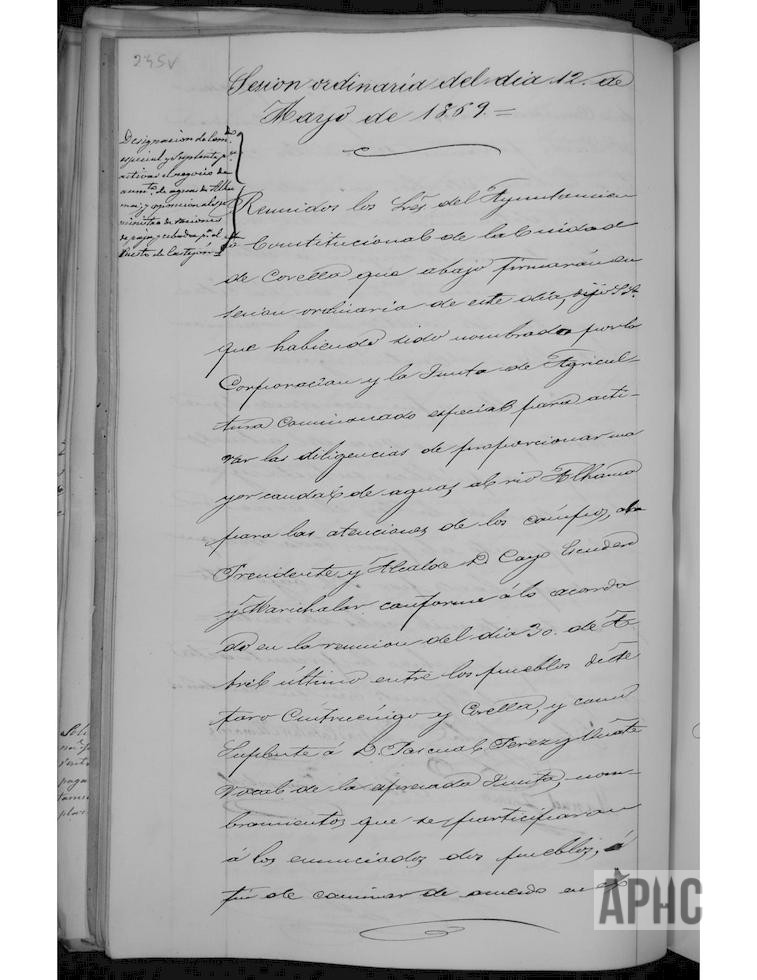 245v
Sesion ordinaria del dia 12. de
Mayo de 1869.=
Designacion de Com.
especial y Suplente p.ª
activar el negocio de
aumto. de aguas de Alha
ma; y oposicion al su
ministro de raciones
de paja y cebada p.ª el
Puesto de Castejon
Reunidos los Sres. del Ayuntamien
to Constitucional de la Ciudad
de Corella que abajo firmarán en
sesion ordinaria de este dia, dijo S.S.ª
que habiendo sido nombrado por la
Corporacion y la Junta de Agricul-
tura comisionado especial para acti-
var las diligencias de proporcionar ma
yor caudal de aguas al rio Alhama
para las atenciones de los campos, el
Presidente y Alcalde D. Cayo Escudero
y Marichalar conforme á lo acorda
do en la reunion del dia 30. de A-
bril último entre los pueblos de Cte
taro Cintruénigo y Corella, y como
Suplente á D. Pascual Perez y Oñate
vocal de la espresada Junta, nom-
bramientos que se participaran
á los enunciados dos pueblos, á
fin de caminar de acuerdo en el
APHC